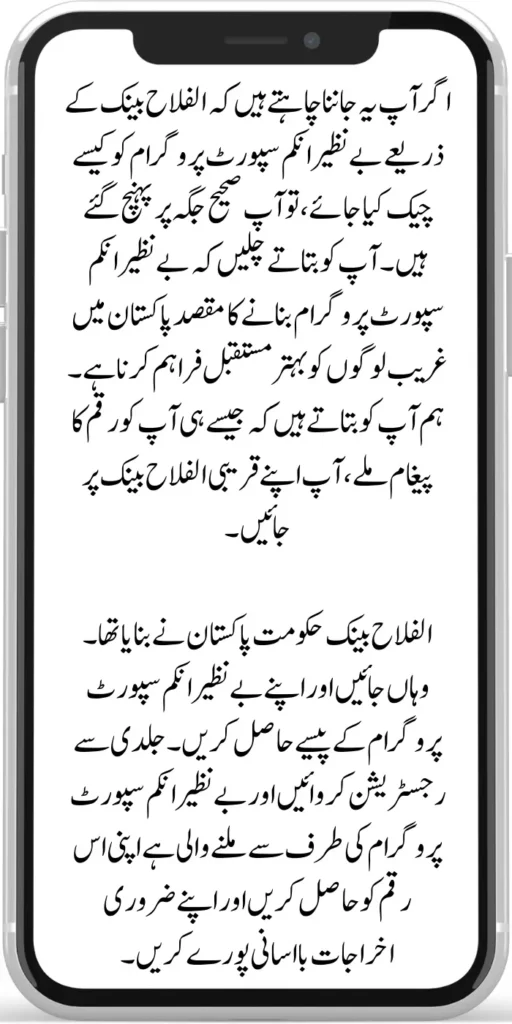 اگر آپ یہ جاننا چاہتے ہیں کہ الفلاح بینک کے
ذریعے بے نظیر انکم سپورٹ پروگرام کو کیسے
چیک کیا جائے، تو آپ صحیح جگہ پر پہنچ گئے
ہیں۔ آپ کو بتاتے چلیں کہ بے نظیر انکم
سپورٹ پروگرام بنانے کا مقصد پاکستان میں
غریب لوگوں کو بہتر مستقبل فراہم کرنا ہے۔
ہم آپ کو بتاتے ہیں کہ جیسے ہی آپ کو رقم کا
پیغام ملے، آپ اپنے قریبی الفلاح بینک پر
جائیں۔
الفلاح بینک حکومت پاکستان نے بنایا تھا۔
وہاں جائیں اور اپنے بے نظیر انکم سپورٹ
پروگرام کے پیسے حاصل کریں۔ جلدی سے
رجسٹریشن کروائیں اور بے نظیر انکم سپورٹ
پروگرام کی طرف سے ملنے والی ہے اپنی اس
رقم کو حاصل کریں اور اپنے ضروری
اخراجات بااسانی پورے کریں۔